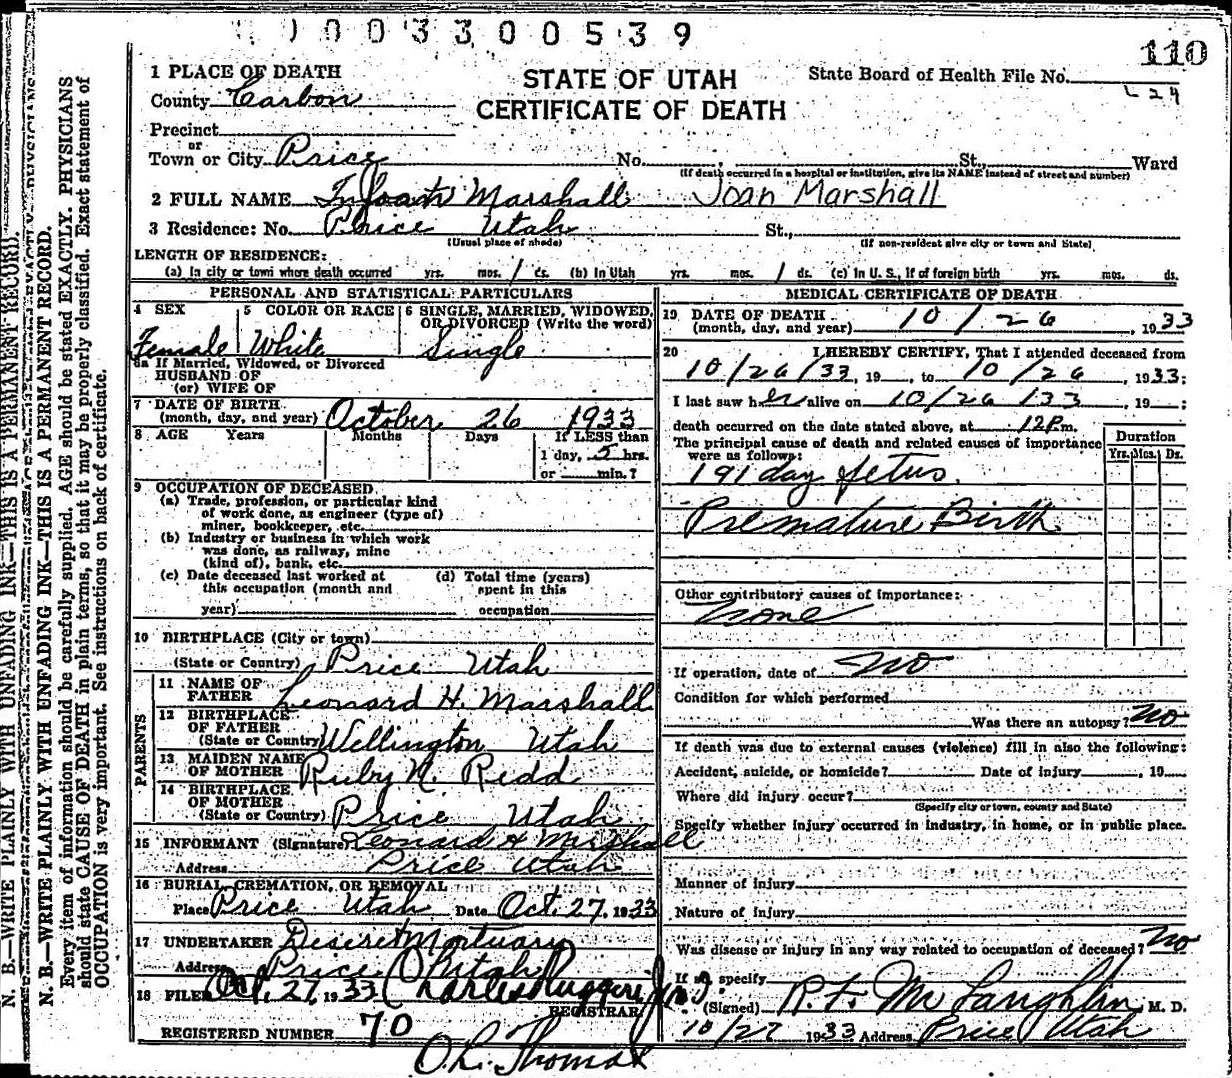 0 0 3 3 0 0 5 3 9
110
1 PLACE OF DEATH
STATE OF UTAH
CERTIFICATE OF DEATH
State Board of Health File No.
County Carbon
Precinct
or
Town or City Price No. St., Ward
(If death occurred in a hospital or institution, give its NAME instead of street and number)
2 FULL NAME Marshall Joan Marshall
3 Residence: No. Price Utah St.,
(Usual place of abode) (If non-resident give city or town and State)
LENGTH OF RESIDENCE:
(a) In city or town where death occurred yrs. mos. 1 ds. (b) In Utah yrs. mos. 1 ds. (c) In U. S., if of foreign birth yrs. mos. ds.
PERSONAL AND STATISTICAL PARTICULARS
4 SEX Female
5 COLOR OR RACE White
6 SINGLE, MARRIED, WIDOWED, OR DIVORCED (Write the word) Single
6a If Married, Widowed, or Divorced
HUSBAND OF
(or) WIFE OF
7 DATE OF BIRTH
(month, day, and year) October 26 1933
8 AGE Years Months Days If LESS than
1 day, 5 hrs.
or min.?
9 OCCUPATION OF DECEASED
(a) Trade, profession, or particular kind
of work done, as engineer (type of)
miner, bookkeeper, etc.
(b) Industry or business in which work
was done, as railway, mine
(kind of), bank, etc.
(c) Date deceased last worked at
this occupation (month and
year)
(d) Total time (years)
spent in this
occupation
10 BIRTHPLACE (City or town)
(State or Country) Price Utah
PARENTS
11 NAME OF
FATHER Leonard H. Marshall
12 BIRTHPLACE
OF FATHER
(State or Country) Wellington Utah
13 MAIDEN NAME
OF MOTHER Ruby N. Redd
14 BIRTHPLACE
OF MOTHER
(State or Country) Price Utah
15 INFORMANT (Signature) Leonard H Marshall
Address Price Utah
16 BURIAL, CREMATION, OR REMOVAL
Place Price Utah Date Oct. 27, 1933
17 UNDERTAKER Deseret Mortuary
Address Price Utah
18 FILED Oct. 27, 1933 Charles Ruggeri Jr.
REGISTRAR
REGISTERED NUMBER 70
O.L. Thomas
MEDICAL CERTIFICATE OF DEATH
19 DATE OF DEATH
(month, day, and year) 10/26, 1933
20 I HEREBY CERTIFY, That I attended deceased from
10/26/33, 19 , to 10/26, 1933;
I last saw her alive on 10/26/33, 19 ;
death occurred on the date stated above, at 12P m.
The principal cause of death and related causes of importance
were as follows:
Duration
Yrs. Mos. Ds.
191 day fetus.
Premature Birth
Other contributory causes of importance:
None
If operation, date of no
Condition for which performed
Was there an autopsy? no
If death was due to external causes (violence) fill in also the following:
Accident, suicide, or homicide? Date of injury , 19
Where did injury occur?
(Specify city or town, county and State)
Specify whether injury occurred in industry, in home, or in public place.
Manner of injury
Nature of injury
Was disease or injury in any way related to occupation of deceased? no
If so, specify
(Signed) R. F. McLaughlin M. D.
10/27 1933 Address Price Utah
N. B.—WRITE PLAINLY WITH UNFADING INK—THIS IS A PERMANENT RECORD.
N. B.—WRITE PLAINLY WITH UNFADING INK—THIS IS A PERMANENT RECORD.
Every item of information should be carefully supplied. AGE should be stated EXACTLY. PHYSICIANS
should state CAUSE OF DEATH in plain terms, so that it may be properly classified. Exact statement of
OCCUPATION is very important. See instructions on back of certificate.